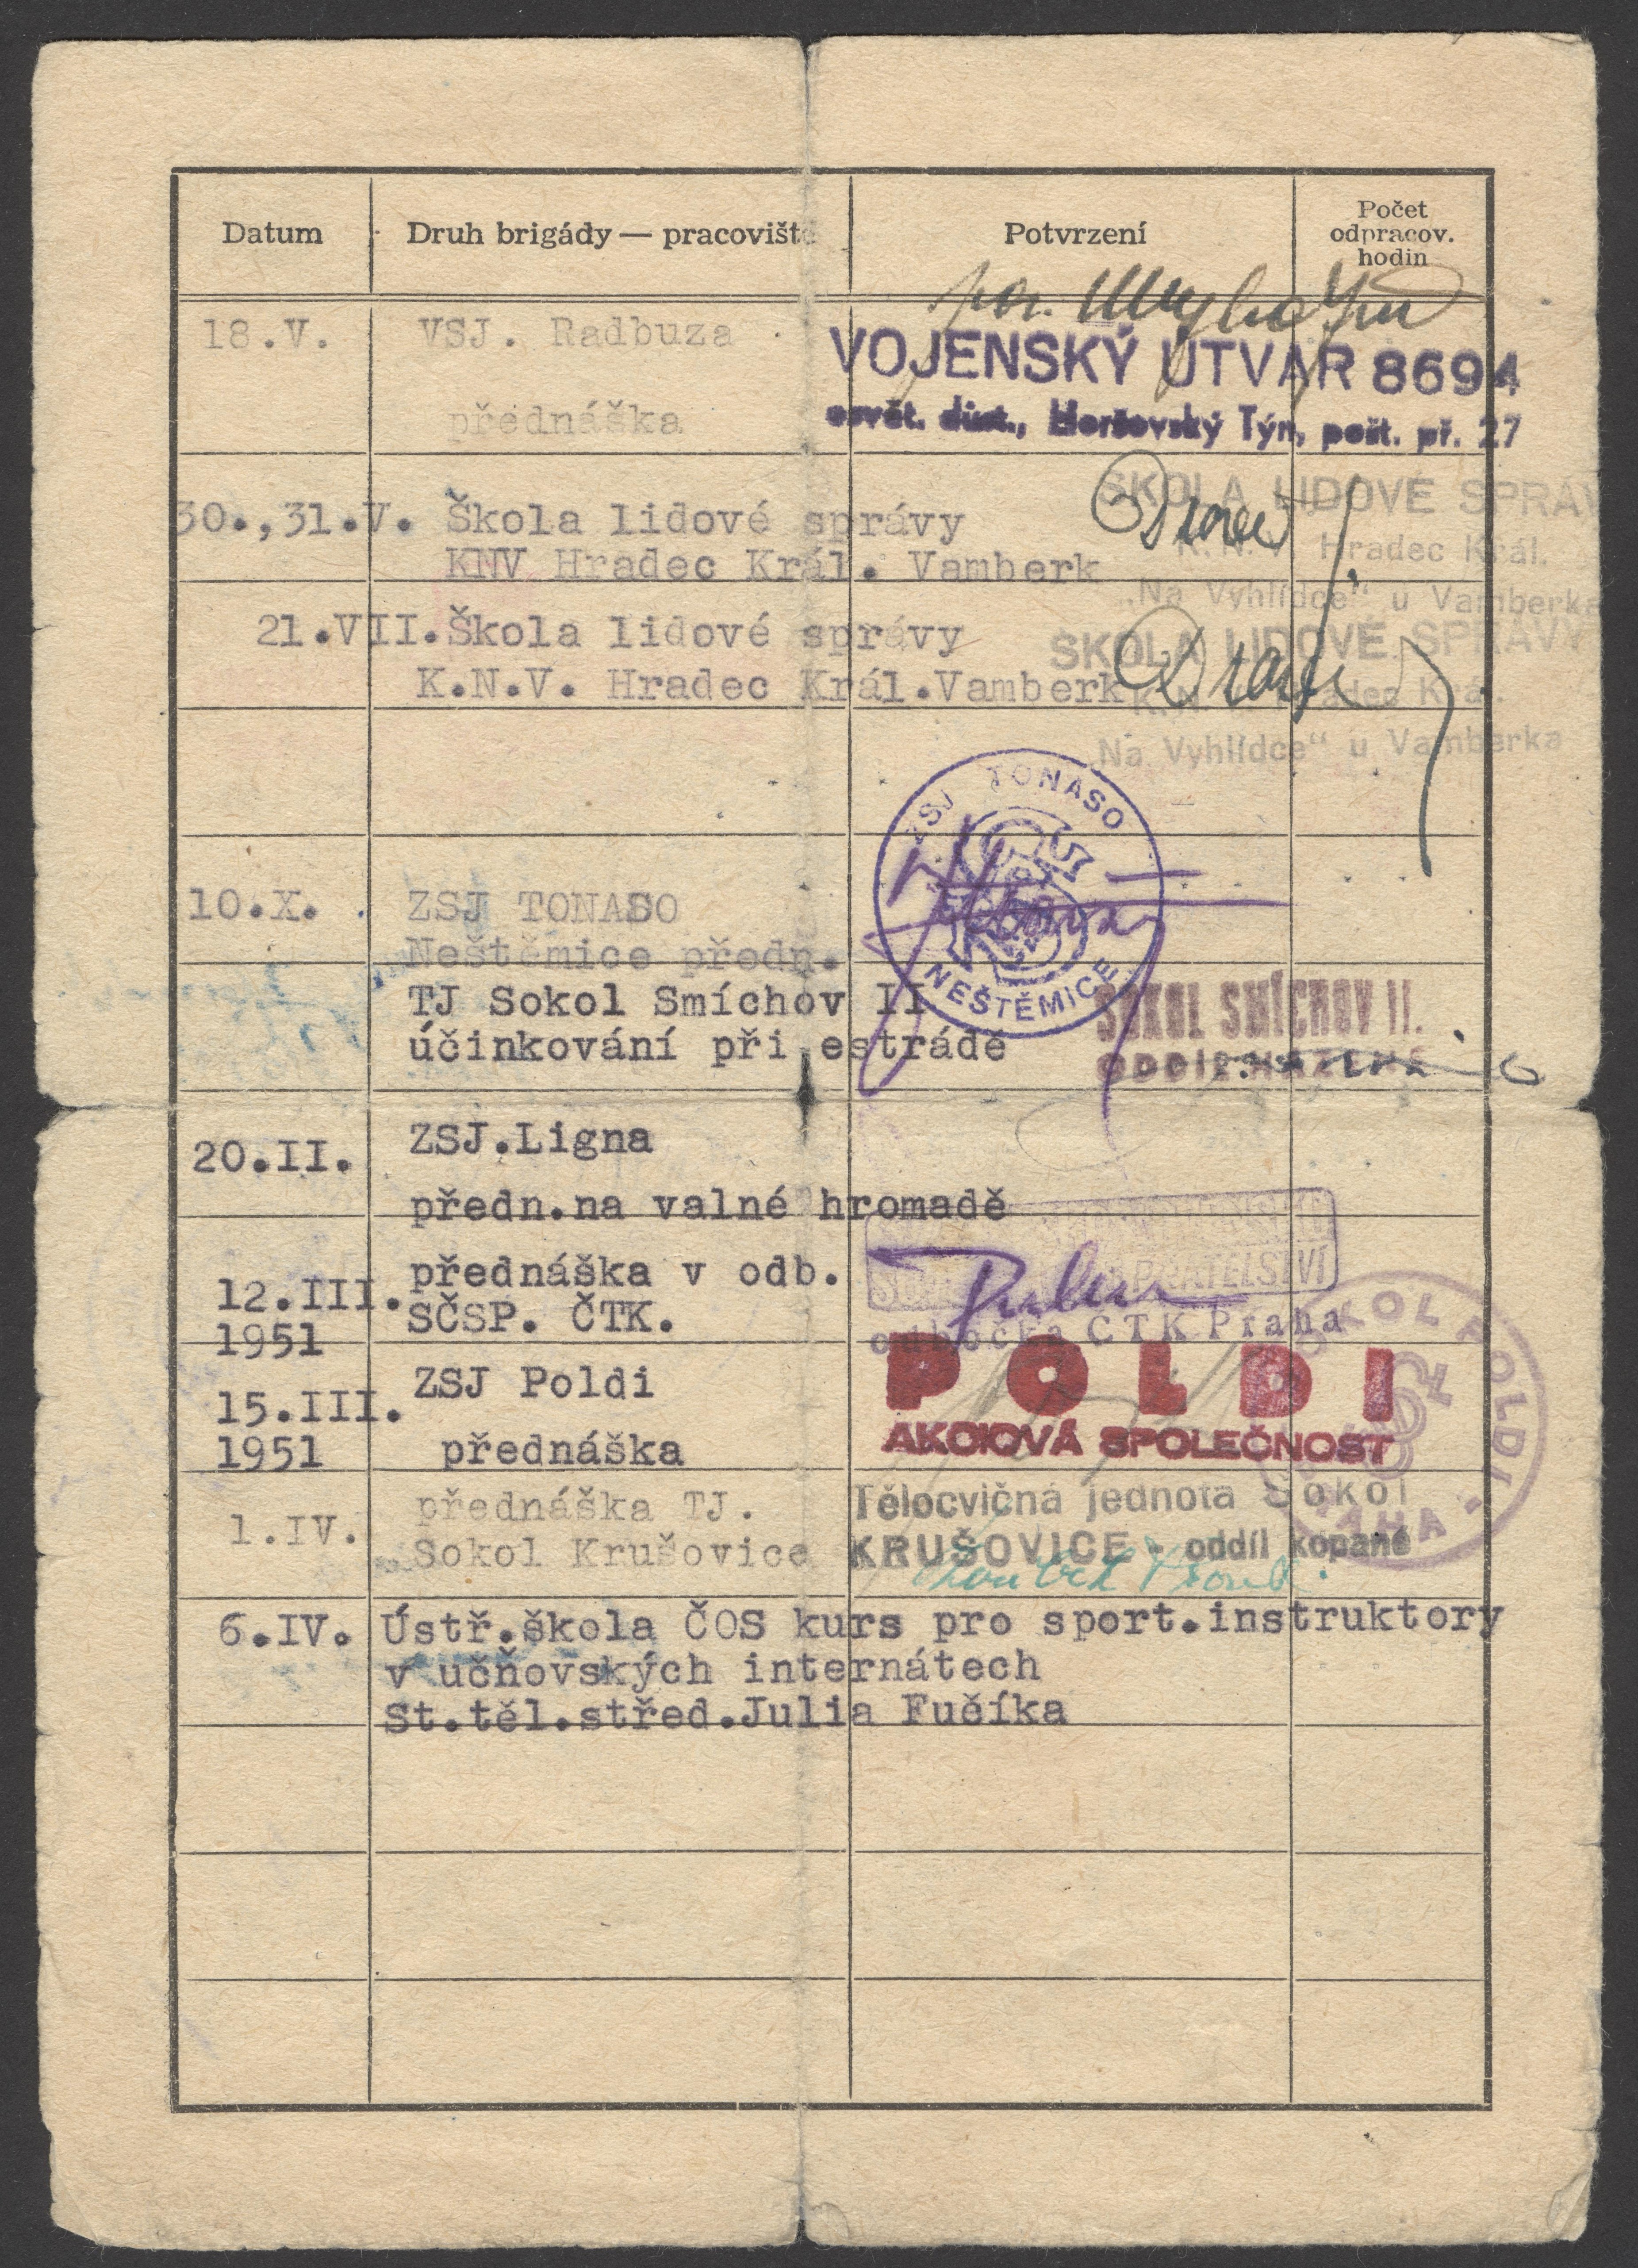 Datum Druh brigády — pracoviště Potvrzení Počet odpracov. hodin
por.
18.V. VSJ. Radbuza
VOJENSKÝ ÚTVAR 8694
přednáška
osvět. důst., Horšovský Týn, pošt. př. 27
ŠKOLA LIDOVÉ SPRÁV
30.,31.V. Škola lidové správy
K.N.V. Hradec Král.
KNV Hradec Král. Vamberk
„Na Vyhlídce" u Vamberka
21.VII. Škola lidové správy
ŠKOLA LIDOVÉ SPRÁVY
K.N.V. Hradec Král. Vamberk
K.N.V. Hradec Král.
„Na Vyhlídce" u Vamberka
ZSJ TONASO
NEŠTĚMICE
10.X. ZSJ TONASO
Neštěmice předn.
TJ Sokol Smíchov II
SOKOL SMÍCHOV II.
účinkování při estrádě
ODDÍL HÁZENÉ
20.II. ZSJ.Ligna
předn.na valné hromadě
12.III. přednáška v odb.
PŘÁTELSTVÍ
1951 SČSP. ČTK.
odbočka ČTK Praha
15.III. ZSJ Poldi
POLDI
1951 přednáška
AKCIOVÁ SPOLEČNOST
SOKOL POLDI PRAHA
1.IV. přednáška TJ.
Tělocvičná jednota Sokol
Sokol Krušovice
KRUŠOVICE - oddíl kopané
6.IV. Ústř.škola ČOS kurs pro sport.instruktory
v učňovských internátech
St.těl.střed.Julia Fučíka